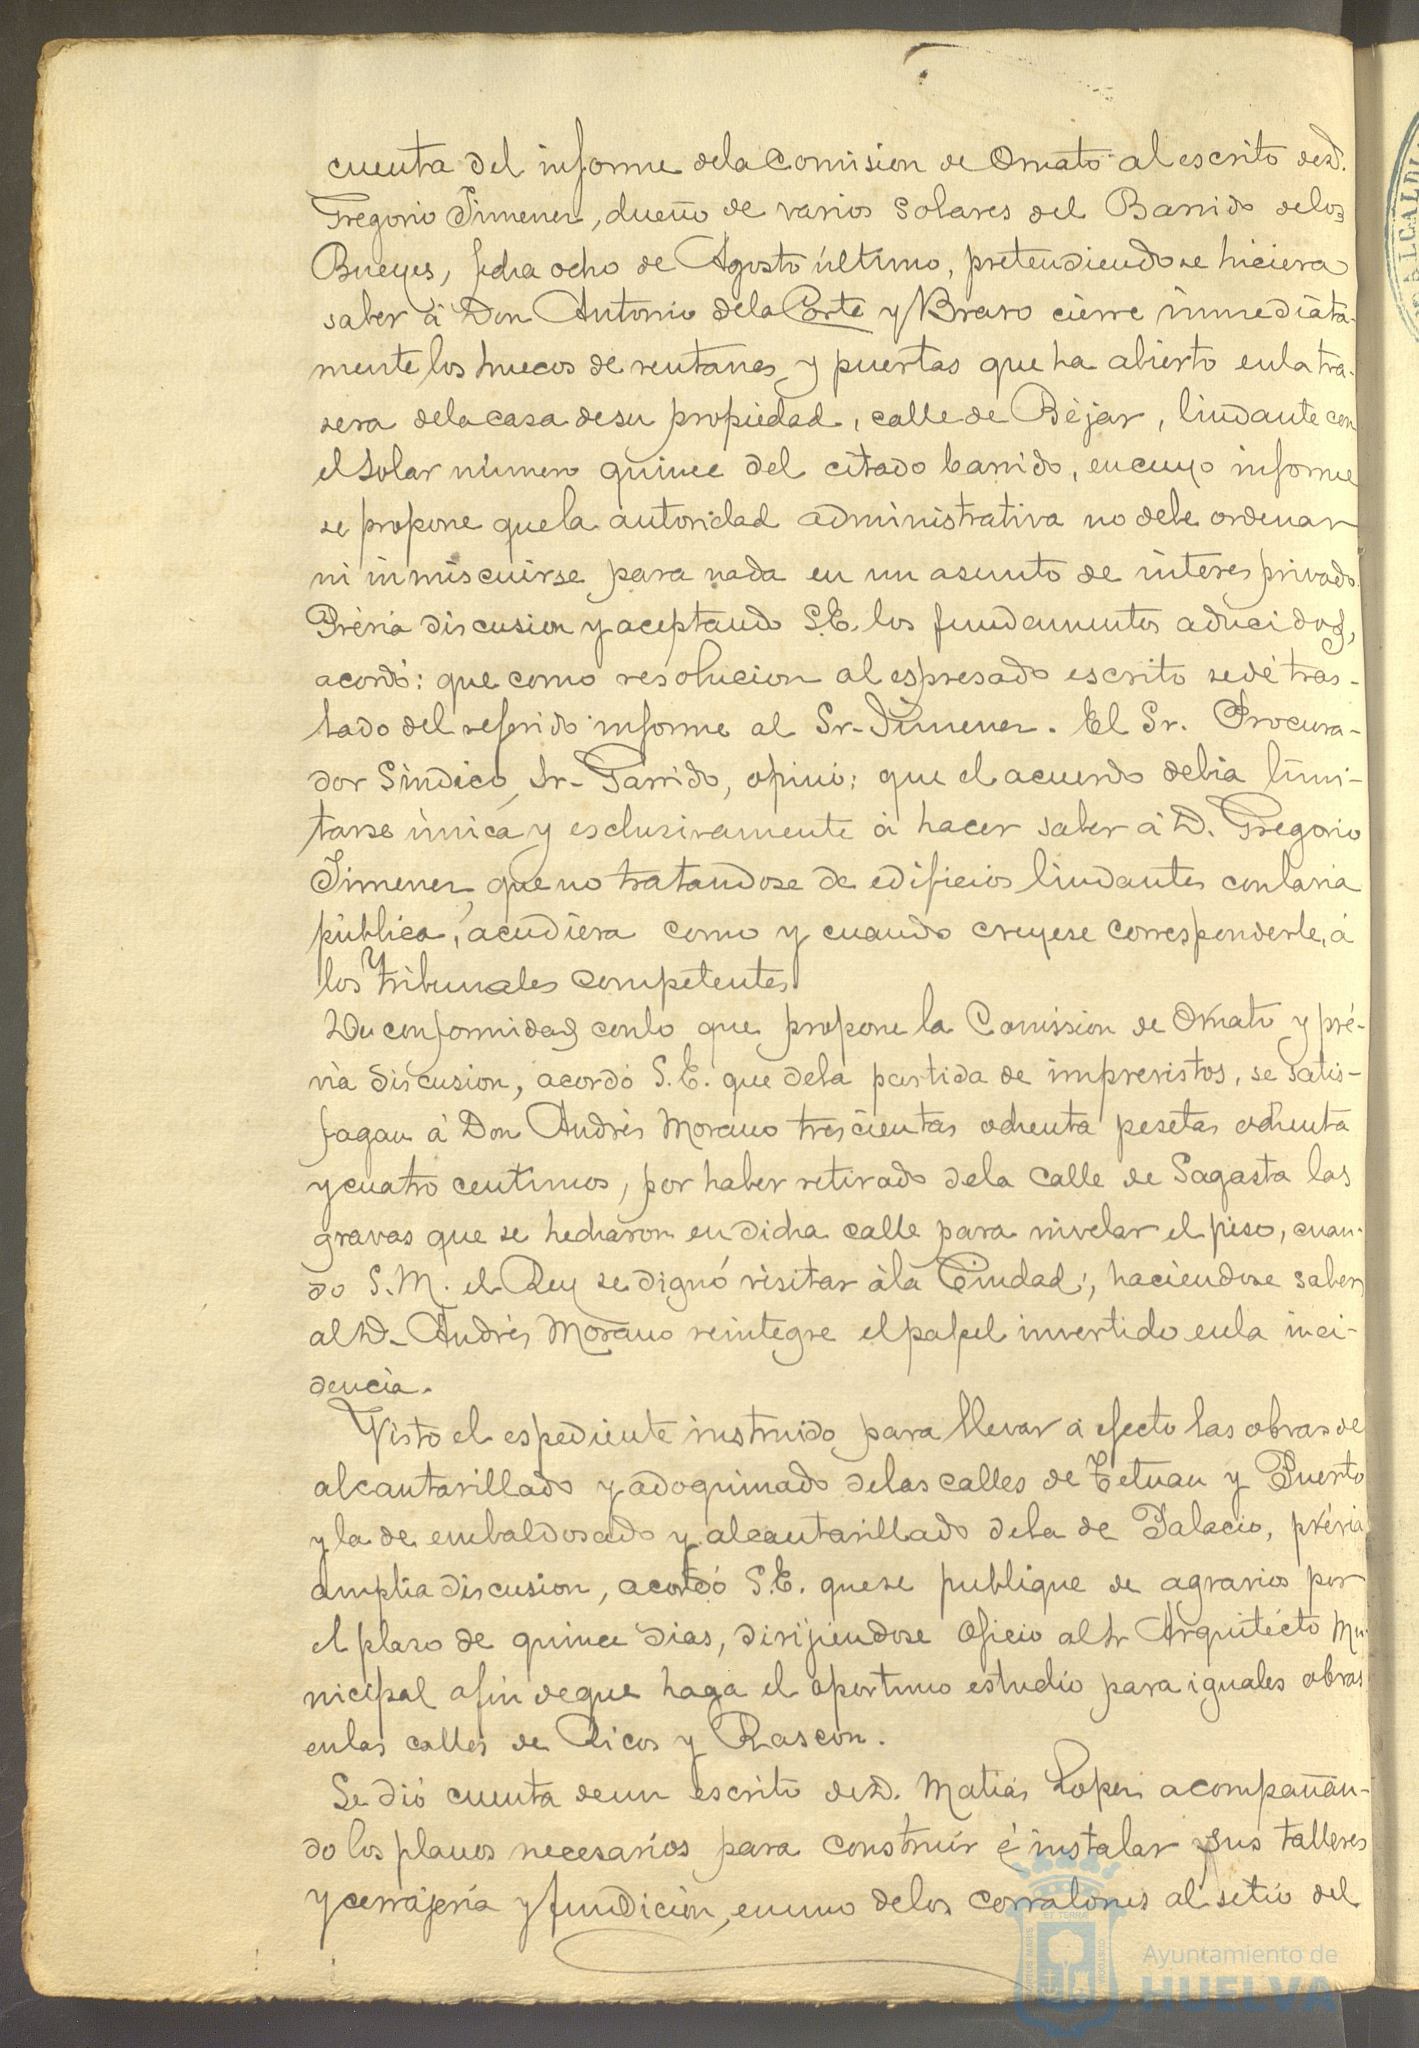 cuenta del informe dela Comision de Ornato al escrito de D.
Gregorio Jimenez, dueño de varios solares del Barrido delos
Bueyes, fecha ocho de Agosto último, pretendiendose hiciera
saber á Don Antonio dela Corte y Bravo cierre inmediata-
mente los huecos de ventanas y puertas que ha abierto enla tra-
sera dela casa desu propiedad, calle de Béjar, lindante con
el solar número quince del citado barrido, encuyo informe
se propone quela autoridad administrativa no debe ordenar
ni inmiscuirse para nada en un asunto de interes privado.
Prévia discusion y aceptando S.E. los fundamentos aducidos,
acordó: que como resolucion al espresado escrito sedé tras-
lado del referido informe al Sr. Jimenez. El Sr. Procura-
dor Sindico, Sr. Garrido, opinó: que el acuerdo debia limi-
tarse única y esclusivamente á hacer saber á D. Gregorio
Jimenez, que no tratandose de edificios lindantes conlavia
pública, acudiera como y cuando creyese corresponderle, á
los Tribunales competentes
De conformidad conlo que propone la Comision de Ornato y pré-
via discusion, acordó S.E. que dela partida de imprevistos, se satis-
fagan á Don Andrés Morano trescientas ochenta pesetas ochenta
y cuatro centimos, por haber retirado dela calle de Sagasta las
gravas que se hecharon en dicha calle para nivelar el piso, cuan-
do S.M. el Rey se dignó visitar ála Ciudad; haciendose saber
al D. Andrés Morano reintegre el papel invertido enla inci-
dencia.
Visto el espediente instruido para llevar á efecto las obras de
alcantarillado y adoquinado delas calles de Tetuan y Puerto
y la de embaldosado y alcantarillado dela de Palacio, prévia
amplia discusion, acordó S.E. quese publique de agravios por
el plazo de quince dias, dirijiendose oficio al Sr Arquitécto Mu-
nicipal afin deque haga el oportuno estudio para iguales obras
enlas calles de Ricos y Rascon.
Se dió cuenta deun escrito de D. Matias Lopez acompañan-
do los planos necesarios para construir é instalar sus talleres
y cerrajería y fundicion, enuno delos corralones al sitio del
Ayuntamiento de
HUELVA